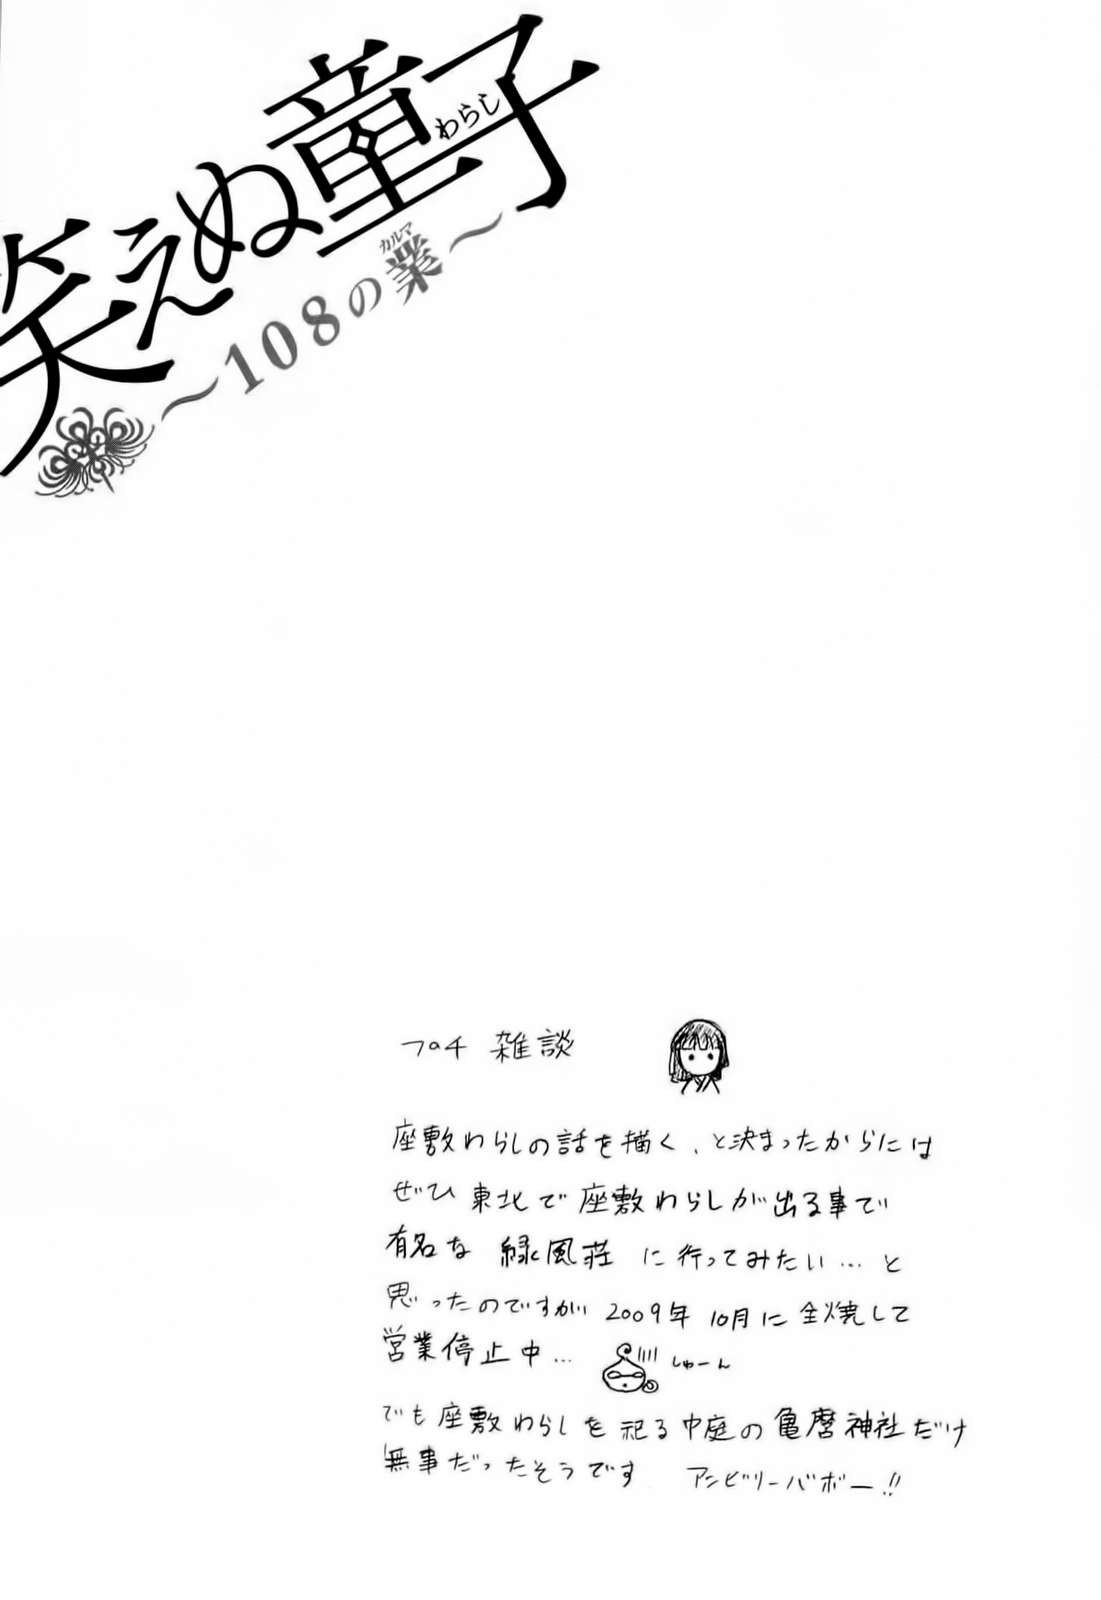 笑えぬ童子
わらし
～108の業～
カルマ
プチ 雑談
座敷わらしの話を描く、と決まったからには
ぜひ 東北で 座敷わらしが出る事で
有名な 緑風荘 に行ってみたい…と
思ったのですが 2009年 10月に 全焼して
営業停止中…
しゅーん
でも座敷わらしを祀る中庭の亀麿神社だけ
無事だったそうです アンビリーバボー!!